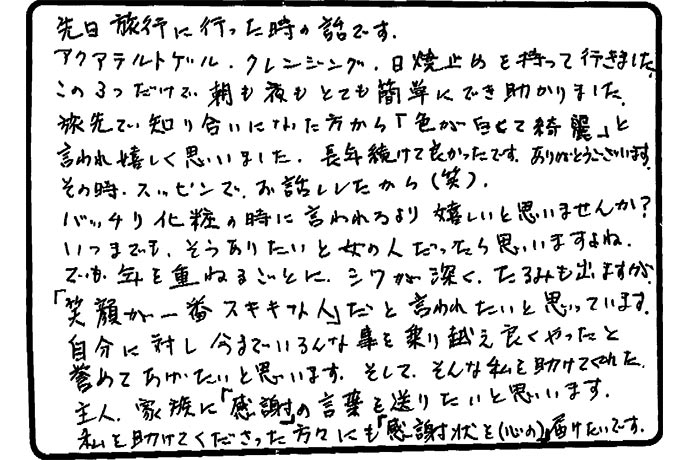 先日旅行に行った時の話です。
アクアテルトゲル、クレンジング、日焼止めを持って行きました。
この3つだけで朝も夜もとても簡単にでき助かりました。
旅先で知り合いになった方から「色が白くて綺麗」と
言われ嬉しく思いました。長年続けて良かったです。ありがとうございます。
その時、スッピンで、お話ししたから(笑)。
バッチリ化粧の時に言われるより嬉しいと思いませんか?
いつまでも、そうありたいと女の人だったら思いますよね。
でも年を重ねるごとに、シワが深く、たるみも出ますが、
「笑顔が一番ステキな人」だと言われたいと思っています。
自分に対し今までいろんな事を乗り越え良くやったと
誉めてあげたいと思います。そして、そんな私を助けてくれた、
主人、家族に「感謝」の言葉を送りたいと思います。
私を助けてくださった方々にも「感謝状を(心の)」届けたいです。